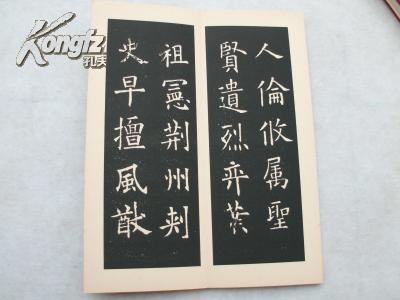 人倫攸属聖
賢遺烈弈葉
祖憲荊州刺
史早擅風猷
Kongfz
孔夫